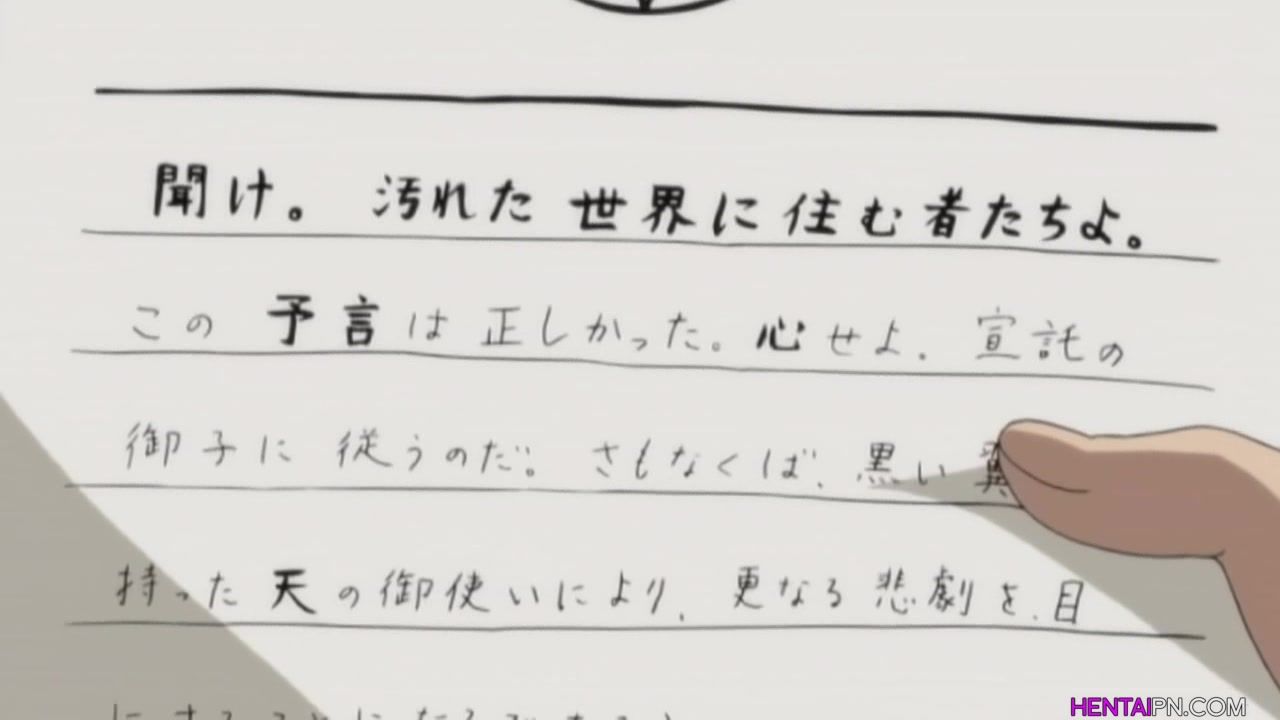 聞け。汚れた世界に住む者たちよ。
この予言は正しかった。心せよ。宣託の
御子に従うのだ。さもなくば、黒い翼
持った天の御使いにより、更なる悲劇を、目
にすることになるであろう
HENTAIPN.COM